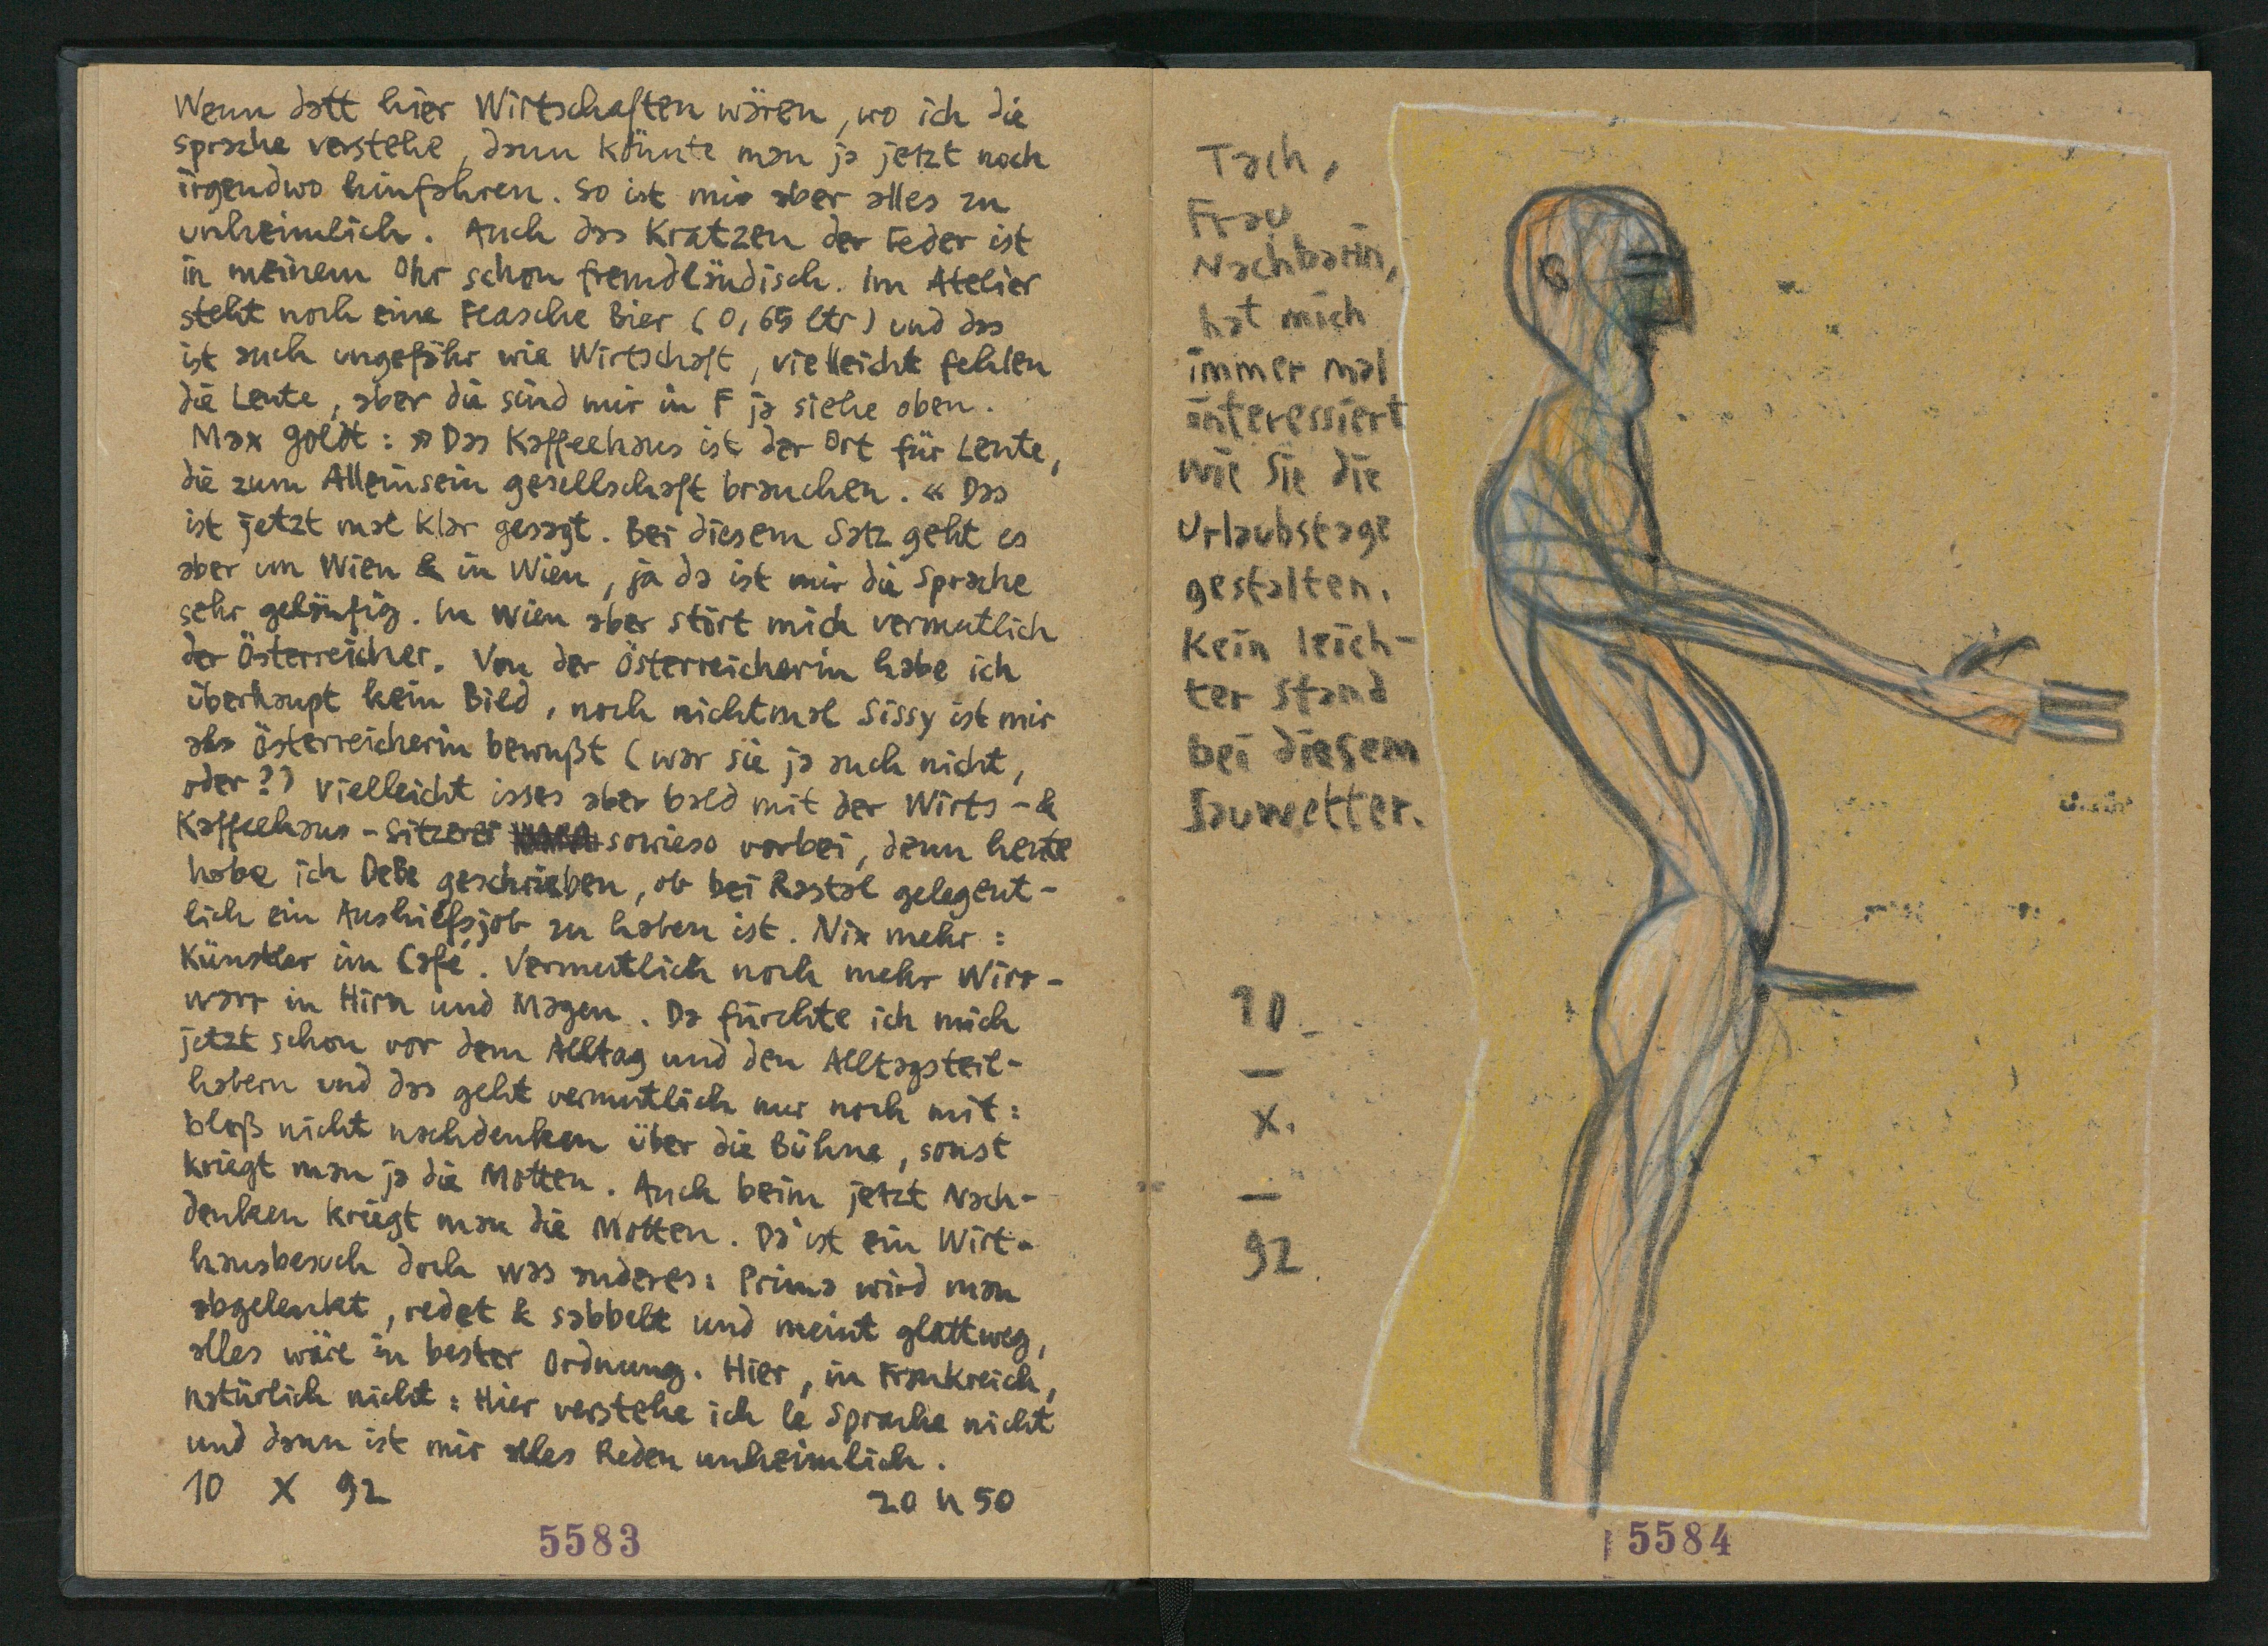 Wenn datt hier Wirtschaften wären, wo ich die
Sprache verstehe, dann könnte man ja jetzt noch
irgendwo hinfahren. So ist mir aber alles zu
unheimlich. Auch das Kratzen der Feder ist
in meinem Ohr schon fremdländisch. Im Atelier
steht noch eine Flasche Bier (0,65 ltr) und das
ist auch ungefähr wie Wirtschaft, vielleicht fehlen
die Leute, aber die sind mir in F ja siehe oben.
Max Goldt: »Das Kaffeehaus ist der Ort für Leute,
die zum Alleinsein Gesellschaft brauchen.« Das
ist jetzt mal klar gesagt. Bei diesem Satz geht es
aber um Wien & in Wien, ja da ist mir die Sprache
sehr geläufig. In Wien aber stört mich vermutlich
der Österreicher. Von der Österreicherin habe ich
überhaupt kein Bild, noch nichtmal Sissy ist mir
als Österreicherin bewußt (war sie ja auch nicht,
oder??) Vielleicht isses aber bald mit der Wirts- &
Kaffeehaus-Sitzerei sowieso vorbei, denn heute
habe ich DeBe geschrieben, ob bei Rastal gelegent-
lich ein Aushilfsjob zu haben ist. Nix mehr:
Künstler im Café. Vermutlich noch mehr Wirr-
warr in Hirn und Magen. Da fürchte ich mich
jetzt schon vor dem Alltag und den Alltagsteil-
habern und das geht vermutlich nur noch mit:
bloß nicht nachdenken über die Bühne, sonst
kriegt man ja die Motten. Auch beim jetzt Nach-
denken kriegt man die Motten. Da ist ein Wirt-
hausbesuch doch was anderes: Prima wird man
abgelenkt, redet & sabbelt und meint glattweg,
alles wäre in bester Ordnung. Hier, in Frankreich,
natürlich nicht: Hier verstehe ich le Sprache nicht
und dann ist mir alles Reden unheimlich.
10 X 92 20 h 50
5583
Tach,
Frau
Nachbarin,
hat mich
immer mal
interessiert
wie Sie die
Urlaubstage
gestalten.
Kein leich-
ter Stand
bei diesem
Sauwetter.
10
—
X.
—
92.
5584